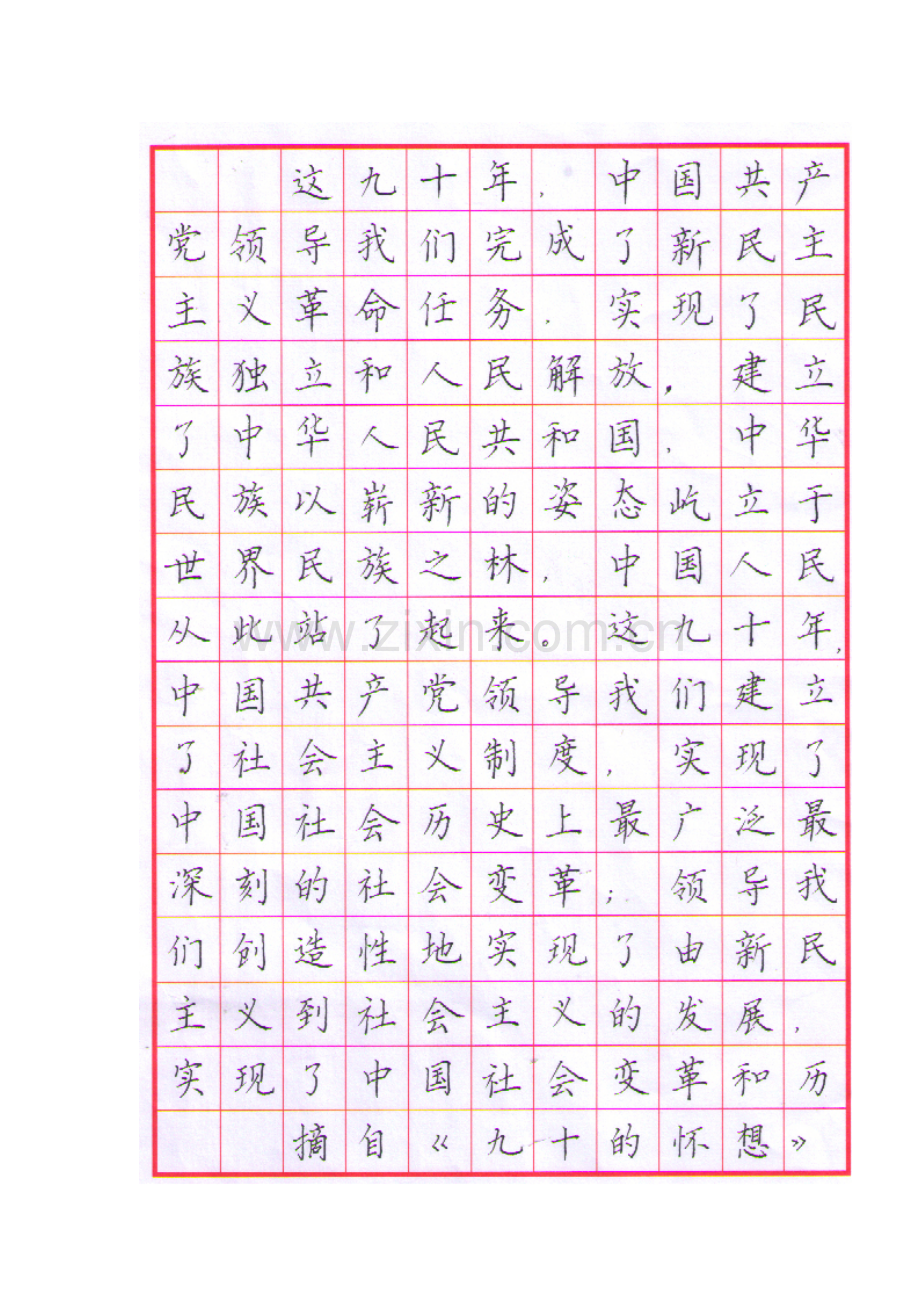 这九十年，中国共产
党领导我们完成了新民主
主义革命任务，实现了民
族独立和人民解放，建立
了中华人民共和国，中华
民族以崭新的姿态屹立于
世界民族之林，中国人民
从此站了起来。这九十年，
中国共产党领导我们建立
了社会主义制度，实现了
中国社会历史上最广泛最
深刻的社会变革；领导我
们创造性地实现了由新民
主义到社会主义的发展，
实现了中国社会变革和历
摘自《九十的怀想》
www.zixin.com.cn